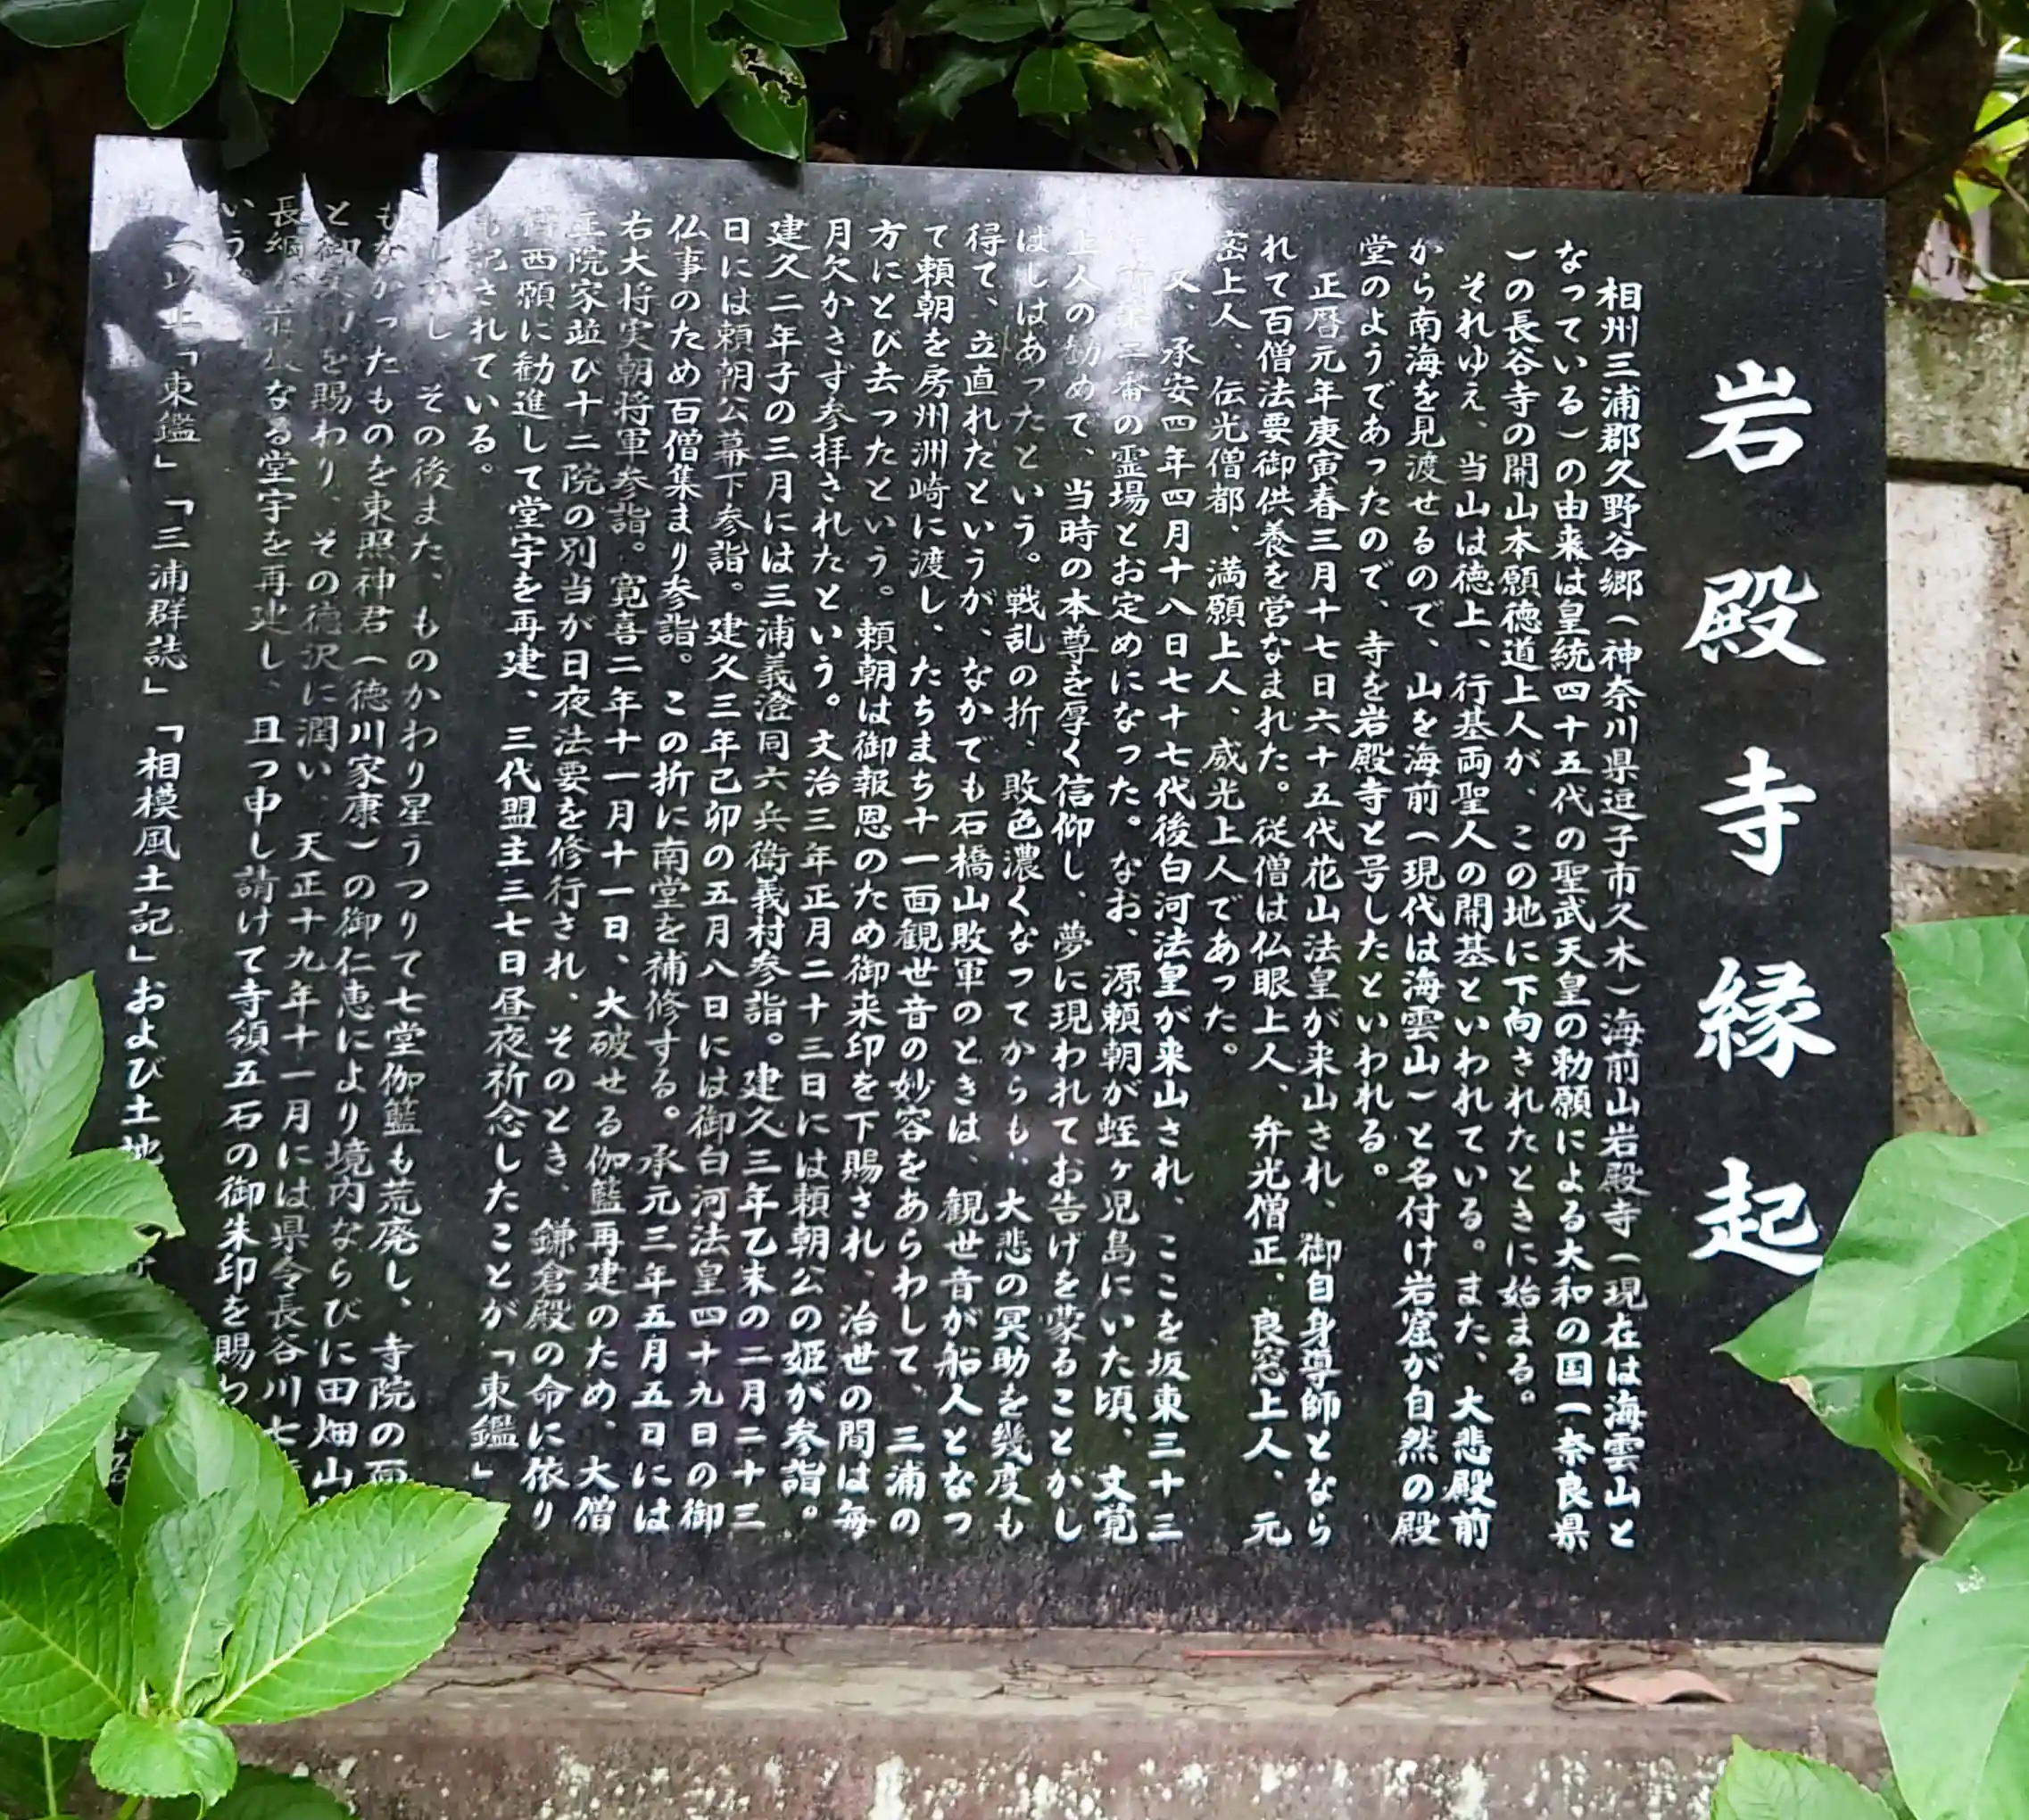 岩殿寺縁起
相州三浦郡久野谷郷(神奈川県逗子市久木)海前山岩殿寺(現在は海雲山と
なっている)の由来は皇統四十五代の聖武天皇の勅願による大和の国(奈良県
)の長谷寺の開山本願徳道上人が、この地に下向されたときに始まる。
それゆえ、当山は徳上、行基両聖人の開基といわれている。また、大悲殿前
から南海を見渡せるので、山を海前(現代は海雲山)と名付け岩窟が自然の殿
堂のようであったので、寺を岩殿寺と号したといわれる。
正暦元年庚寅春三月十七日六十五代花山法皇が来山され、御自身導師となら
れて百僧法要御供養を営なまれた。従僧は仏眼上人、弁光僧正、良窓上人、元
密上人、伝光僧都、満願上人、威光上人であった。
又、承安四年四月十八日七十七代後白河法皇が来山され、ここを坂東三十三
二番の霊場とお定めになった。なお、源頼朝が蛭ヶ児島にいた頃、文覚
上人の勧めて、当時の本尊を厚く信仰し、夢に現われてお告げを蒙ることかし
はしはあったという。戦乱の折、敗色濃くなってからも、大悲の冥助を幾度も
得て、立直れたというが、なかでも石橋山敗軍のときは、観世音が船人となっ
て頼朝を房州洲崎に渡し、たちまち十一面観世音の妙容をあらわして、三浦の
方にとび去ったという。頼朝は御報恩のため御来印を下賜され、治世の間は毎
月欠かさず参拝されたという。文治三年正月二十三日には頼朝公の姫が参詣。
建久二年子の三月には三浦義澄同六兵衛義村参詣。建久三年乙未の二月二十三
日には頼朝公幕下参詣。建久三年己卯の五月八日には御白河法皇四十九日の御
仏事のため百僧集まり参詣。この折に南堂を補修する。承元三年五月五日には
右大将実朝将軍参詣。寛喜二年十一月十一日、大破せる伽藍再建のため、大僧
正院家並び十二院の別当が日夜法要を修行され、そのとき、鎌倉殿の命に依り
西願に勧進して堂宇を再建、三代盟主三七日昼夜祈念したことが「東鑑」
記されている。
し、その後また、ものかわり星うつりて七堂伽藍も荒廃し、寺院の面
もなかったものを東照神君(徳川家康)の御仁恵により境内ならびに田畑山
と御 を賜わり、その徳沢に潤い、天正十九年十一月には県令長谷川七
長綱 なる堂宇を再建し、且つ申し請けて寺領五石の御朱印を賜わ
いう。
(以上「東鑑」「三浦群誌」「相模風土記」および土地